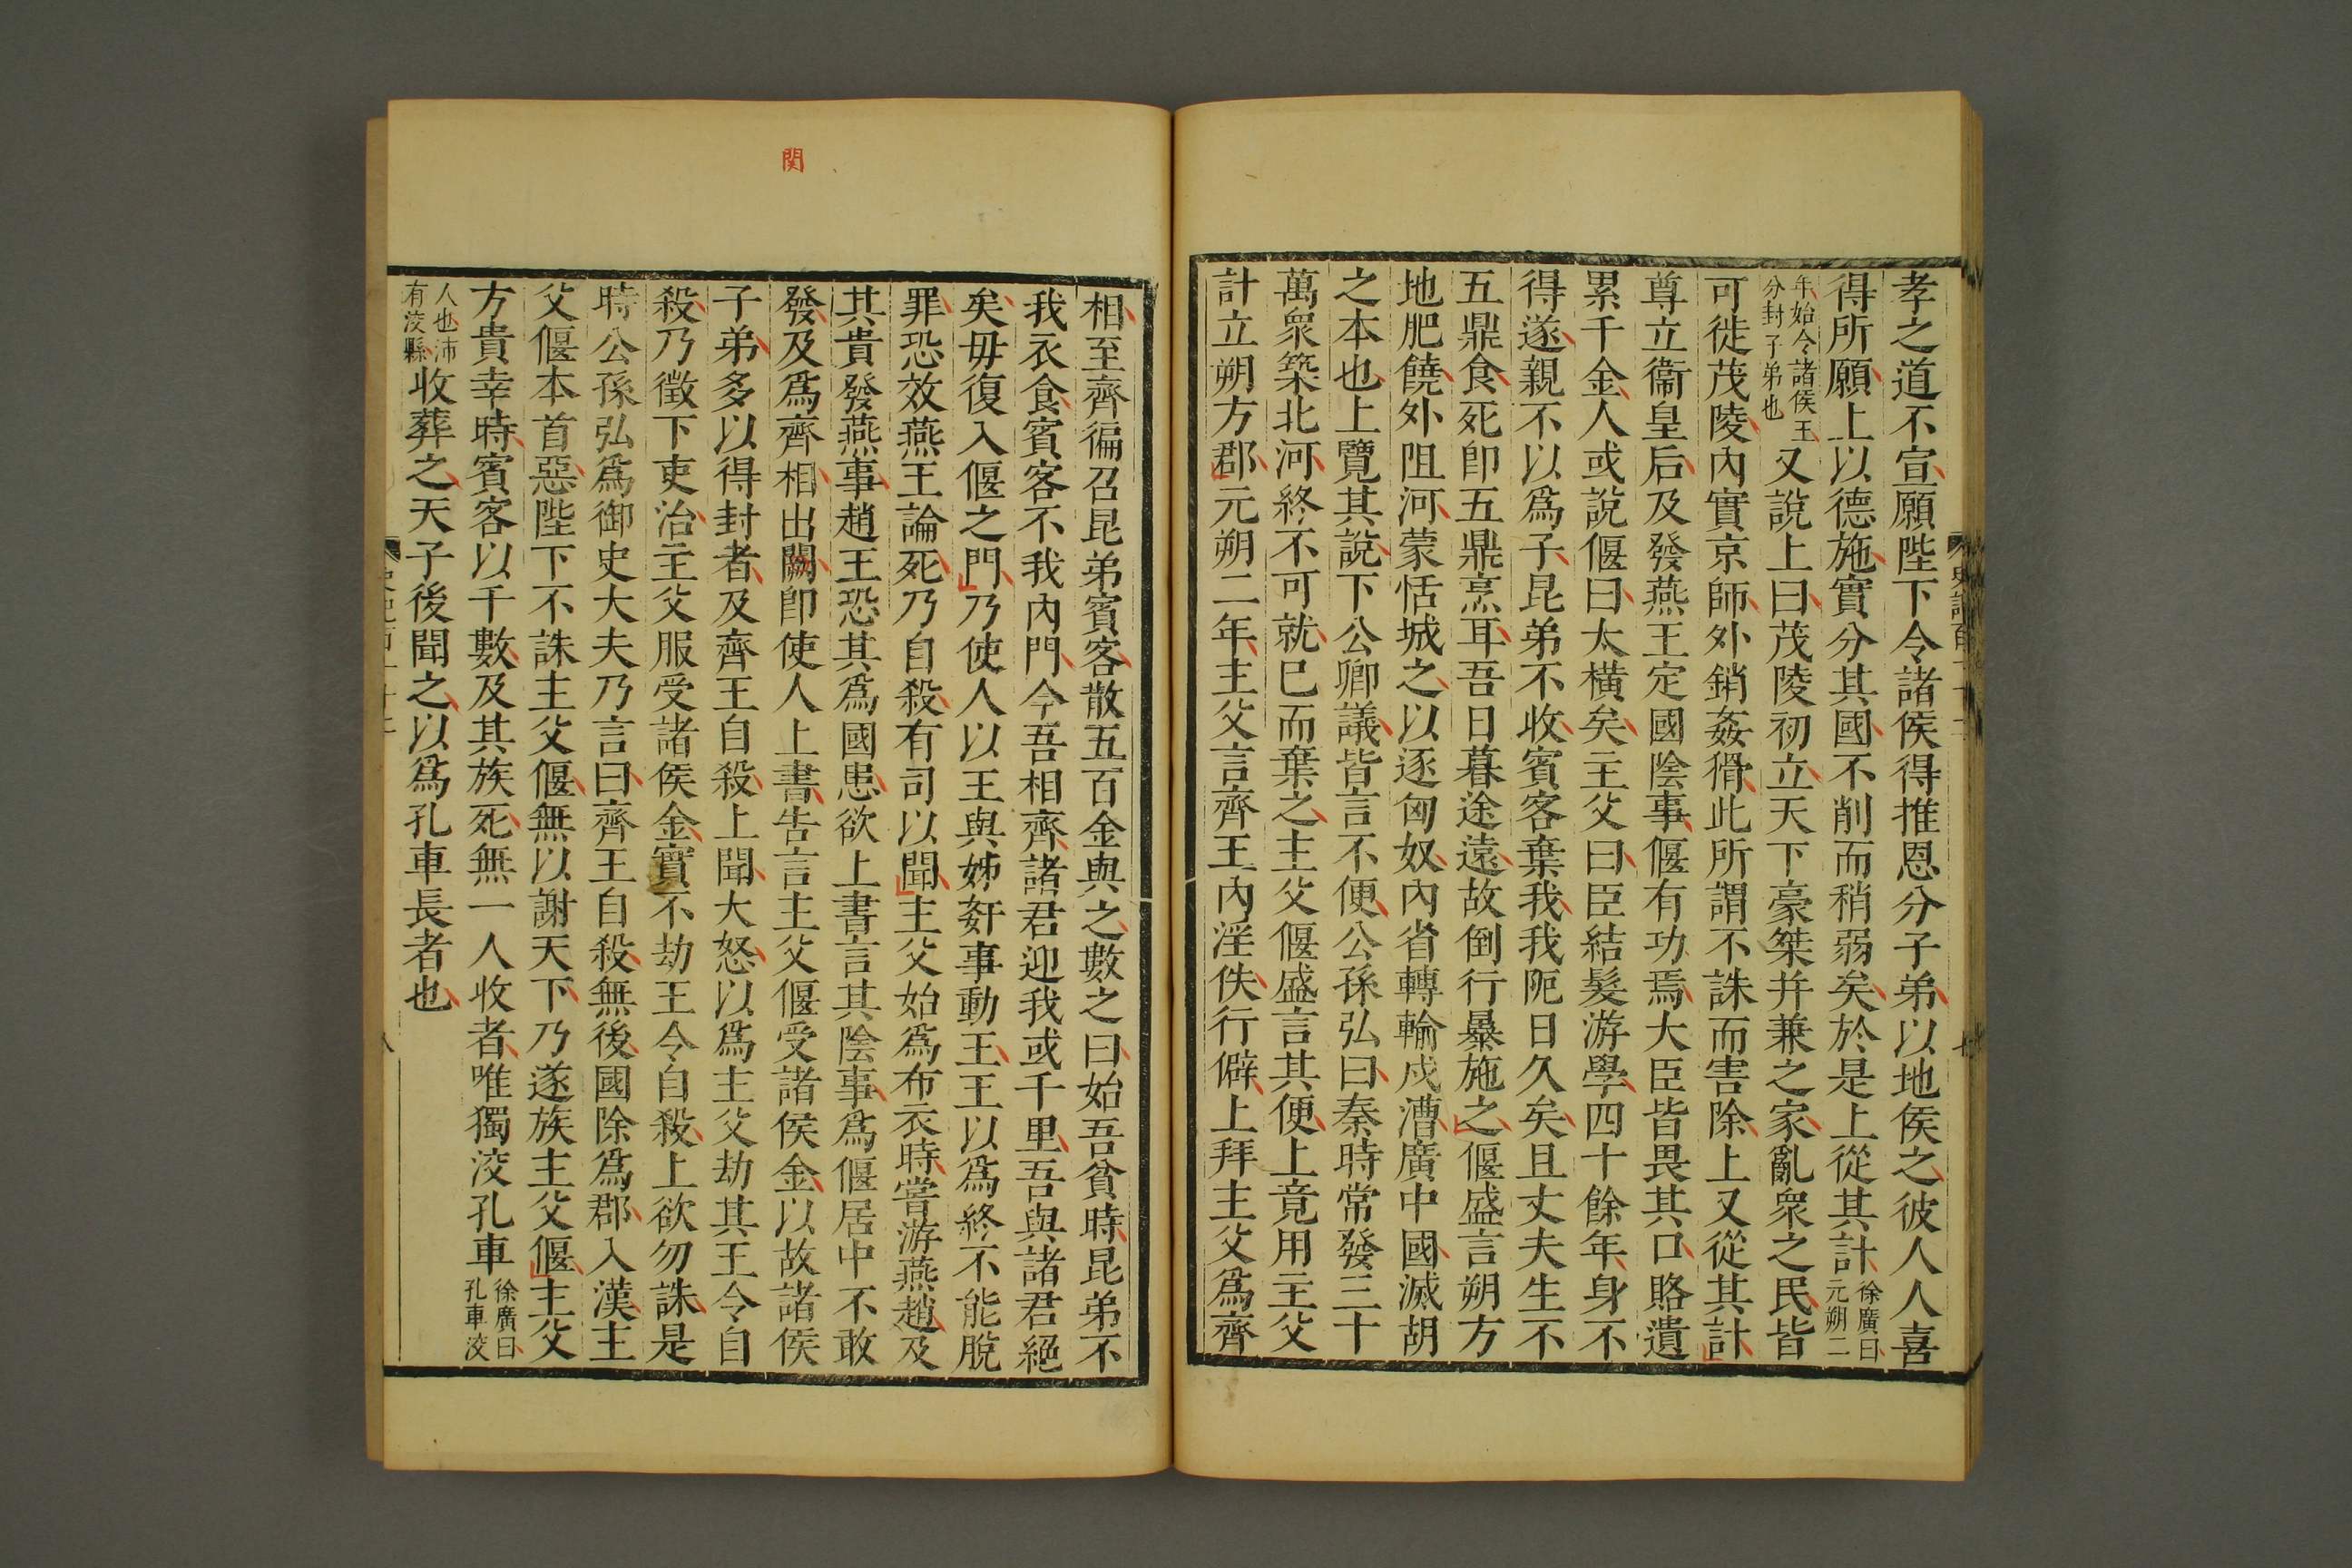 孝之道不宣願陛下令諸侯得推恩分子弟以地侯之彼人人喜
得所願上以德施實分其國不削而稍弱矣於是上從其計徐廣曰元朔二
年始令諸侯王分封子弟也又說上曰茂陵初立天下豪桀并兼之家亂衆之民皆
可徙茂陵內實京師外銷姦猾此所謂不誅而害除上又從其計
尊立衞皇后及發燕王定國陰事偃有功焉大臣皆畏其口賂遺
累千金人或說偃曰太橫矣主父曰臣結髮游學四十餘年身不
得遂親不以爲子昆弟不收賓客棄我我阨日久矣且丈夫生不
五鼎食死卽五鼎烹耳吾日暮途遠故倒行暴施之偃盛言朔方
地肥饒外阻河蒙恬城之以逐匈奴內省轉輸戍漕廣中國滅胡
之本也上覽其說下公卿議皆言不便公孫弘曰秦時常發三十
萬衆築北河終不可就已而棄之主父偃盛言其便上竟用主父
計立朔方郡元朔二年主父言齊王內淫佚行僻上拜主父爲齊
相至齊徧召昆弟賓客散五百金與之數之曰始吾貧時昆弟不
我衣食賓客不我內門今吾相齊諸君迎我或千里吾與諸君絕
矣毋復入偃之門乃使人以王與姊姧事動王王以爲終不能脫
罪恐效燕王論死乃自殺有司以聞主父始爲布衣時嘗游燕趙及
其貴發燕事趙王恐其爲國患欲上書言其陰事爲偃居中不敢
發及爲齊相出關卽使人上書告言主父偃受諸侯金以故諸侯
子弟多以得封者及齊王自殺上聞大怒以爲主父劫其王令自
殺乃徵下吏治主父服受諸侯金實不劫王令自殺上欲勿誅是
時公孫弘爲御史大夫乃言曰齊王自殺無後國除爲郡入漢主
父偃本首惡陛下不誅主父偃無以謝天下乃遂族主父偃主父
方貴幸時賓客以千數及其族死無一人收者唯獨洨孔車徐廣曰孔車洨
人也沛有洨縣收葬之天子後聞之以爲孔車長者也
関